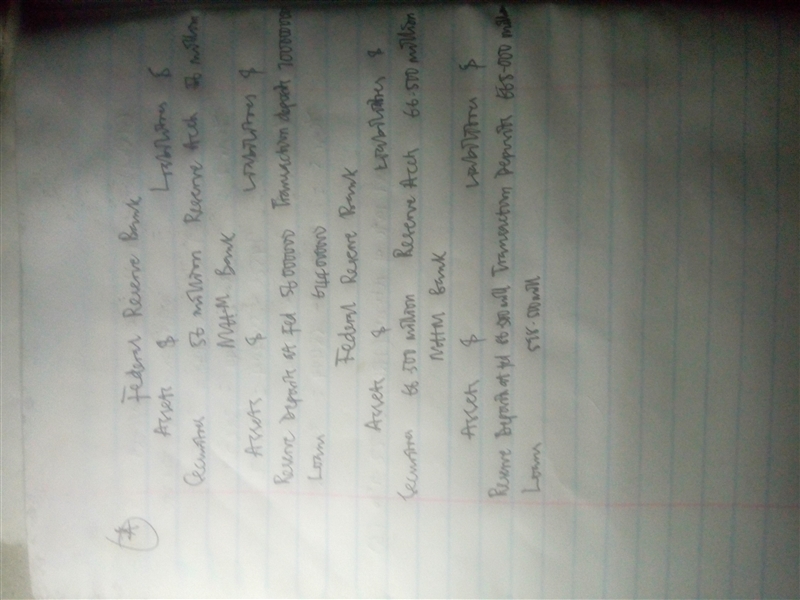 (A)
Federal Reserve Bank
Assets $ Liabilities $
Securities 56 million Reserve Accts 56 million
NAHM Bank
Assets $ Liabilities $
Reserve Deposits at Fed 56000000 Transaction deposits 700000000
Loans 644000000
Federal Reserve Bank
Assets $ Liabilities $
Securities 66.500 million Reserve Accts 66.500 million
NAHM Bank
Assets $ Liabilities $
Reserve Deposit at fed 66.500 mill Transaction Deposits 665.000 million
Loans 598.500 mill